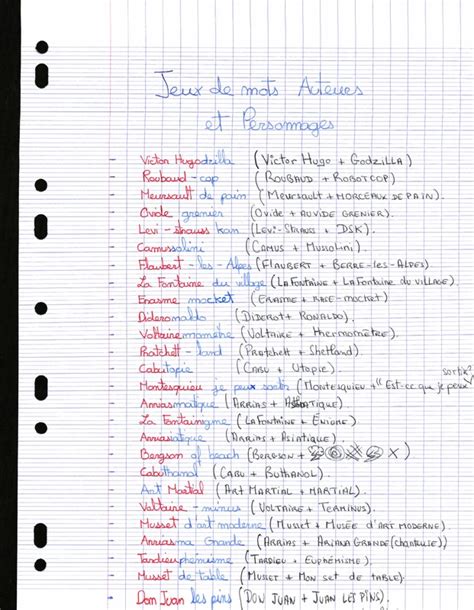 Jeux de mots Auteurs
et Personnages
- Victor Hugodzilla (Victor Hugo + Godzilla)
- Roubaud-cop (Roubaud + Robotcop)
- Meursault de pain (Meursault + morceaux de pain).
- Ovide grenier (Ovide + auvide grenier).
- Levi-strauss kan (Levi-Strauss + DSK).
- Camussolini (Camus + Mussolini).
- Flaubert-les-Alpes (Flaubert + Berre-les-Alpes)
- La Fontaine du village (La Fontaine + La Fontaine du village).
- Erasme mocket (Erasme + -mocket)
- Dideronaldo (Diderot + Ronaldo).
- Voltairemomètre (Voltaire + thermomètre).
- Pratchett-land (Pratchett + Shetland).
- Cabutopie (Cabu + Utopie).
- Montesquieu je peux sortir (Montesquieu + "Est-ce que je peux sortir?")
- Arriasmatique (Arrias + Asthmatique).
- La Fontainigme (La Fontaine + Énigme)
- Arriasiatique (Arrias + Asiatique).
- Bergson of beach (Bergson + x)
- Cabuthanol (Cabu + Buthanol).
- Art Martial (Art Martial + Martial).
- Voltaire-minus (Voltaire + Terminus).
- Musset d'art moderne (Musset + Musée d'art moderne).
- Arriasma Grande (Arrias + Ariana Grande (chanteuse))
- Tardieuphémisme (Tardieu + Euphémisme).
- Musset de table (Musset + Mon set de table).
- Don Juan les pins (Don Juan + Juan les pins).